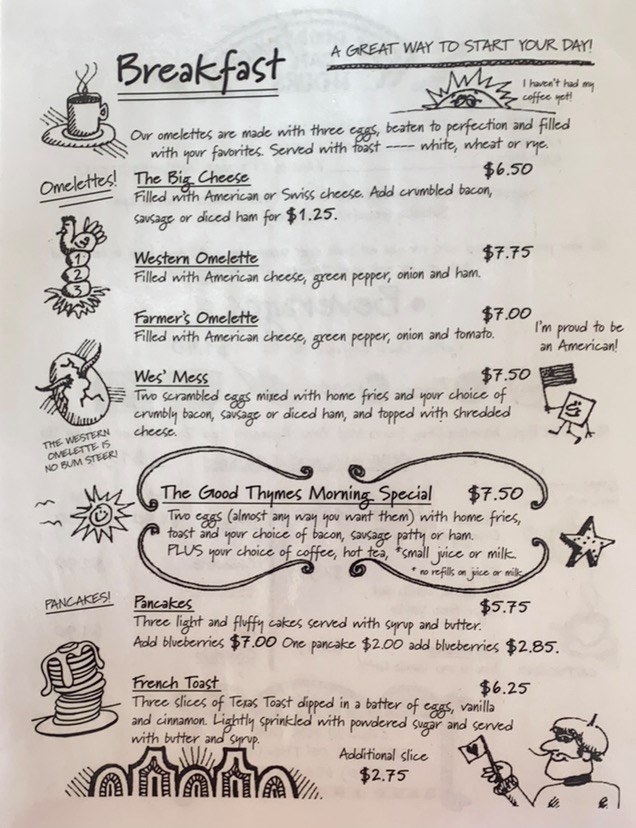 Breakfast
A GREAT WAY TO START YOUR DAY!
I haven't had my
coffee yet!
Our omelettes are made with three eggs, beaten to perfection and filled
with your favorites. Served with toast ---- white, wheat or rye.
Omelettes!
The Big Cheese $6.50
Filled with American or Swiss cheese. Add crumbled bacon,
sausage or diced ham for $1.25.
1
2
3
Western Omelette $7.75
Filled with American cheese, green pepper, onion and ham.
Farmer's Omelette $7.00
Filled with American cheese, green pepper, onion and tomato.
I'm proud to be
an American!
Wes' Mess $7.50
Two scrambled eggs mixed with home fries and your choice of
crumbly bacon, sausage or diced ham, and topped with shredded
cheese.
THE WESTERN
OMELETTE IS
NO BUM STEER!
The Good Thymes Morning Special $7.50
Two eggs (almost any way you want them) with home fries,
toast and your choice of bacon, sausage patty or ham.
PLUS your choice of coffee, hot tea, *small juice or milk.
* no refills on juice or milk
PANCAKES!
Pancakes $5.75
Three light and fluffy cakes served with syrup and butter.
Add blueberries $7.00 One pancake $2.00 add blueberries $2.85.
French Toast $6.25
Three slices of Texas Toast dipped in a batter of eggs, vanilla
and cinnamon. Lightly sprinkled with powdered sugar and served
with butter and syrup.
Additional slice
$2.75